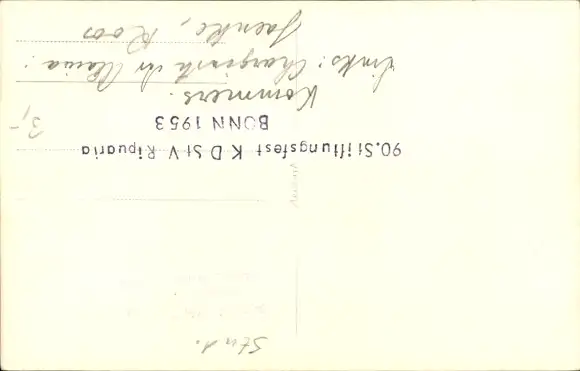 Stud.
90. Stiftungsfest K D St V Ripuaria
BONN 1953
3,-
Kommers.
Links: Chargierte der Alania:
Jaenke, Roos